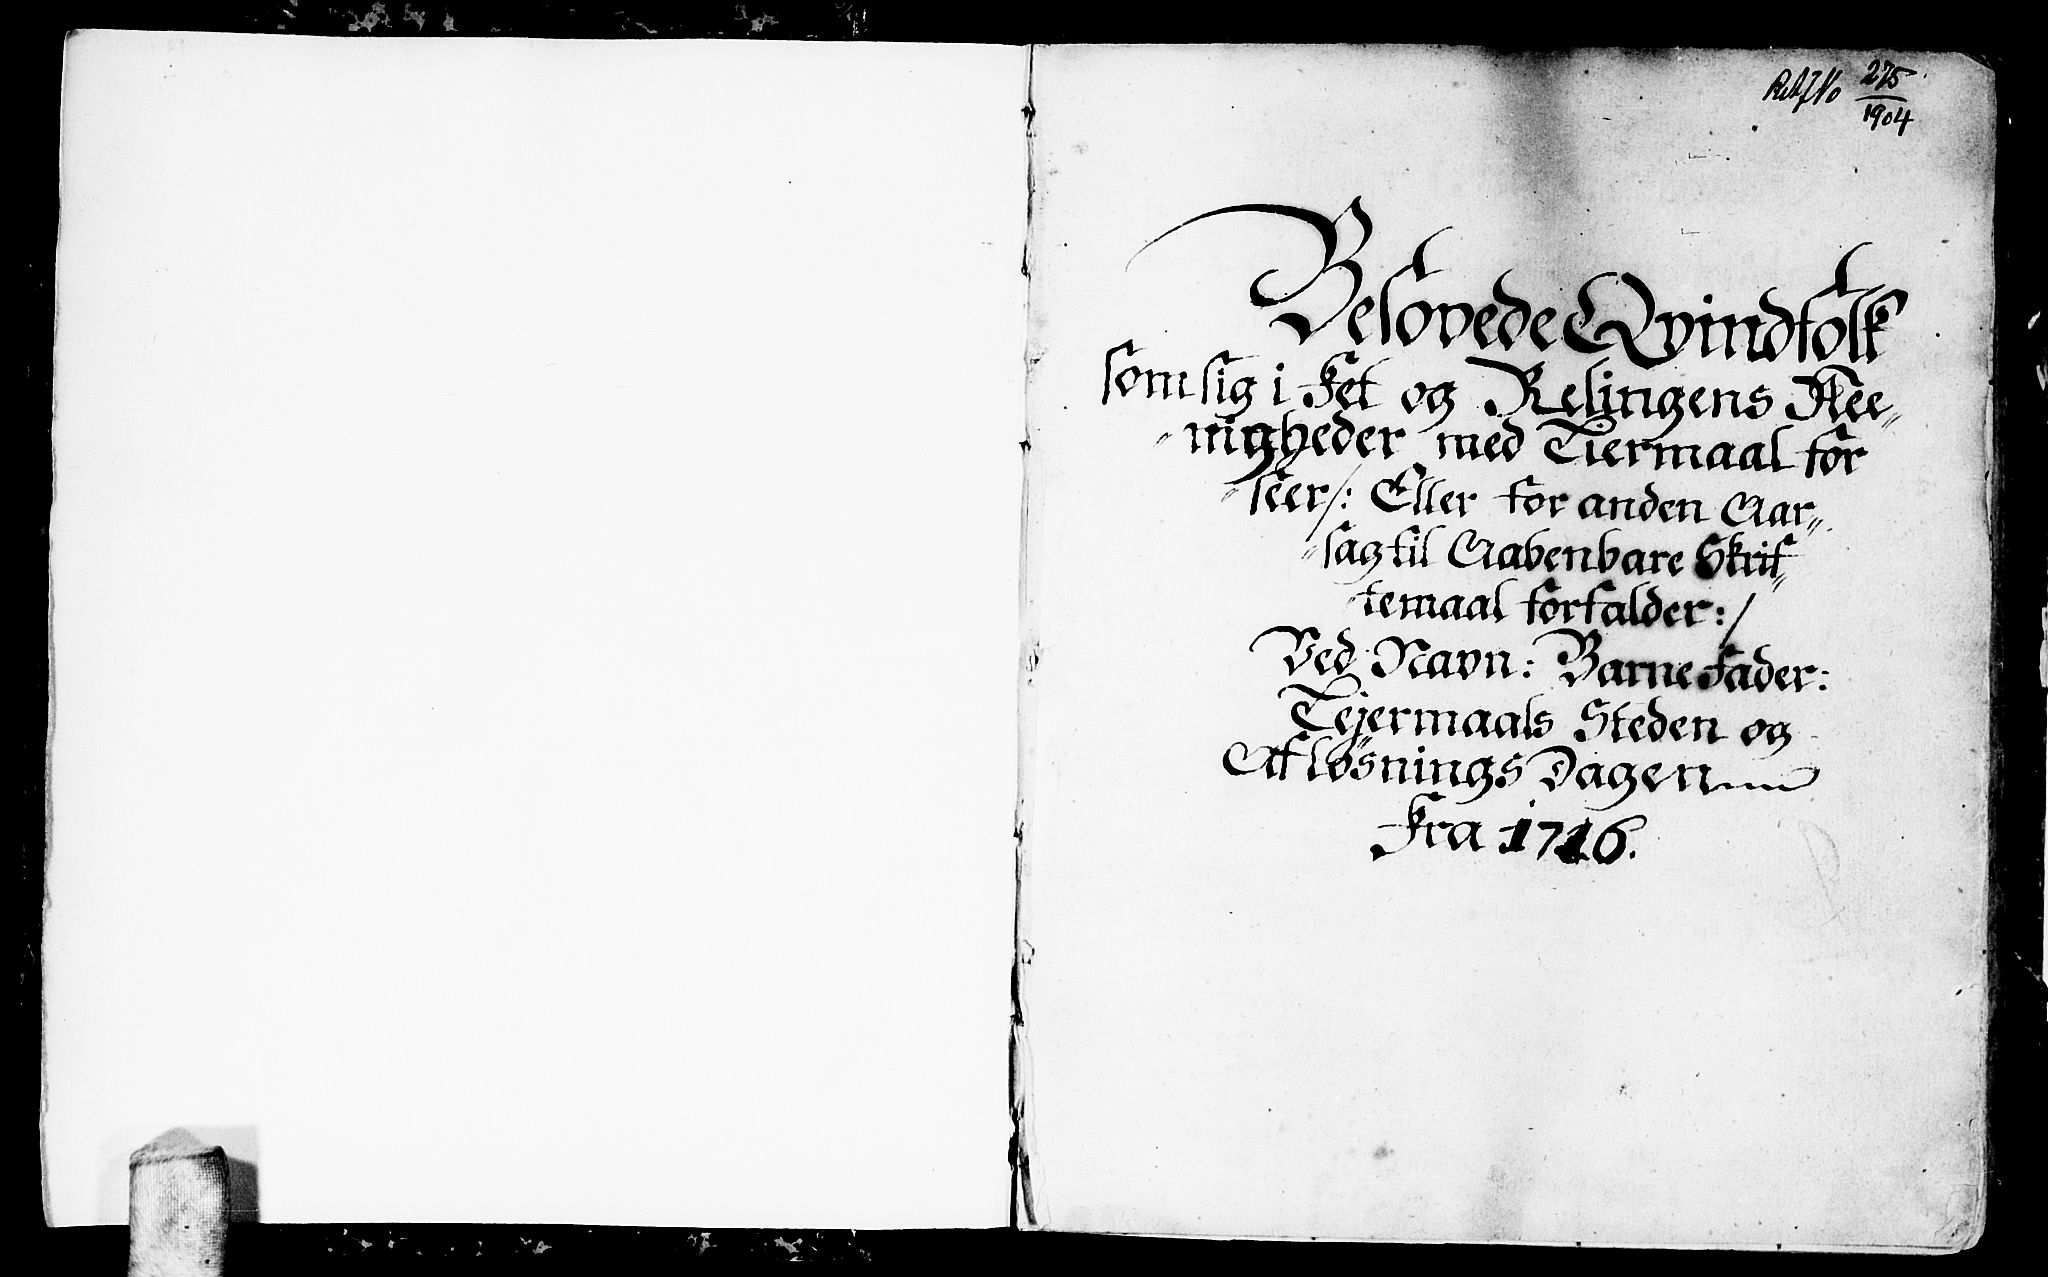 275
1904
Besovede Qvindfolk
som sig i Fet og Relingens Mee„
„nigheder med Tiermaal for
„seer/: Eller for anden Aar„
„sag til Aabenbare Skrif„
„temaal forfalder:/
Ved Navn: Barne Fader:
Tejermaals Steden og
Afløsnings Dagen
Fra 1716.